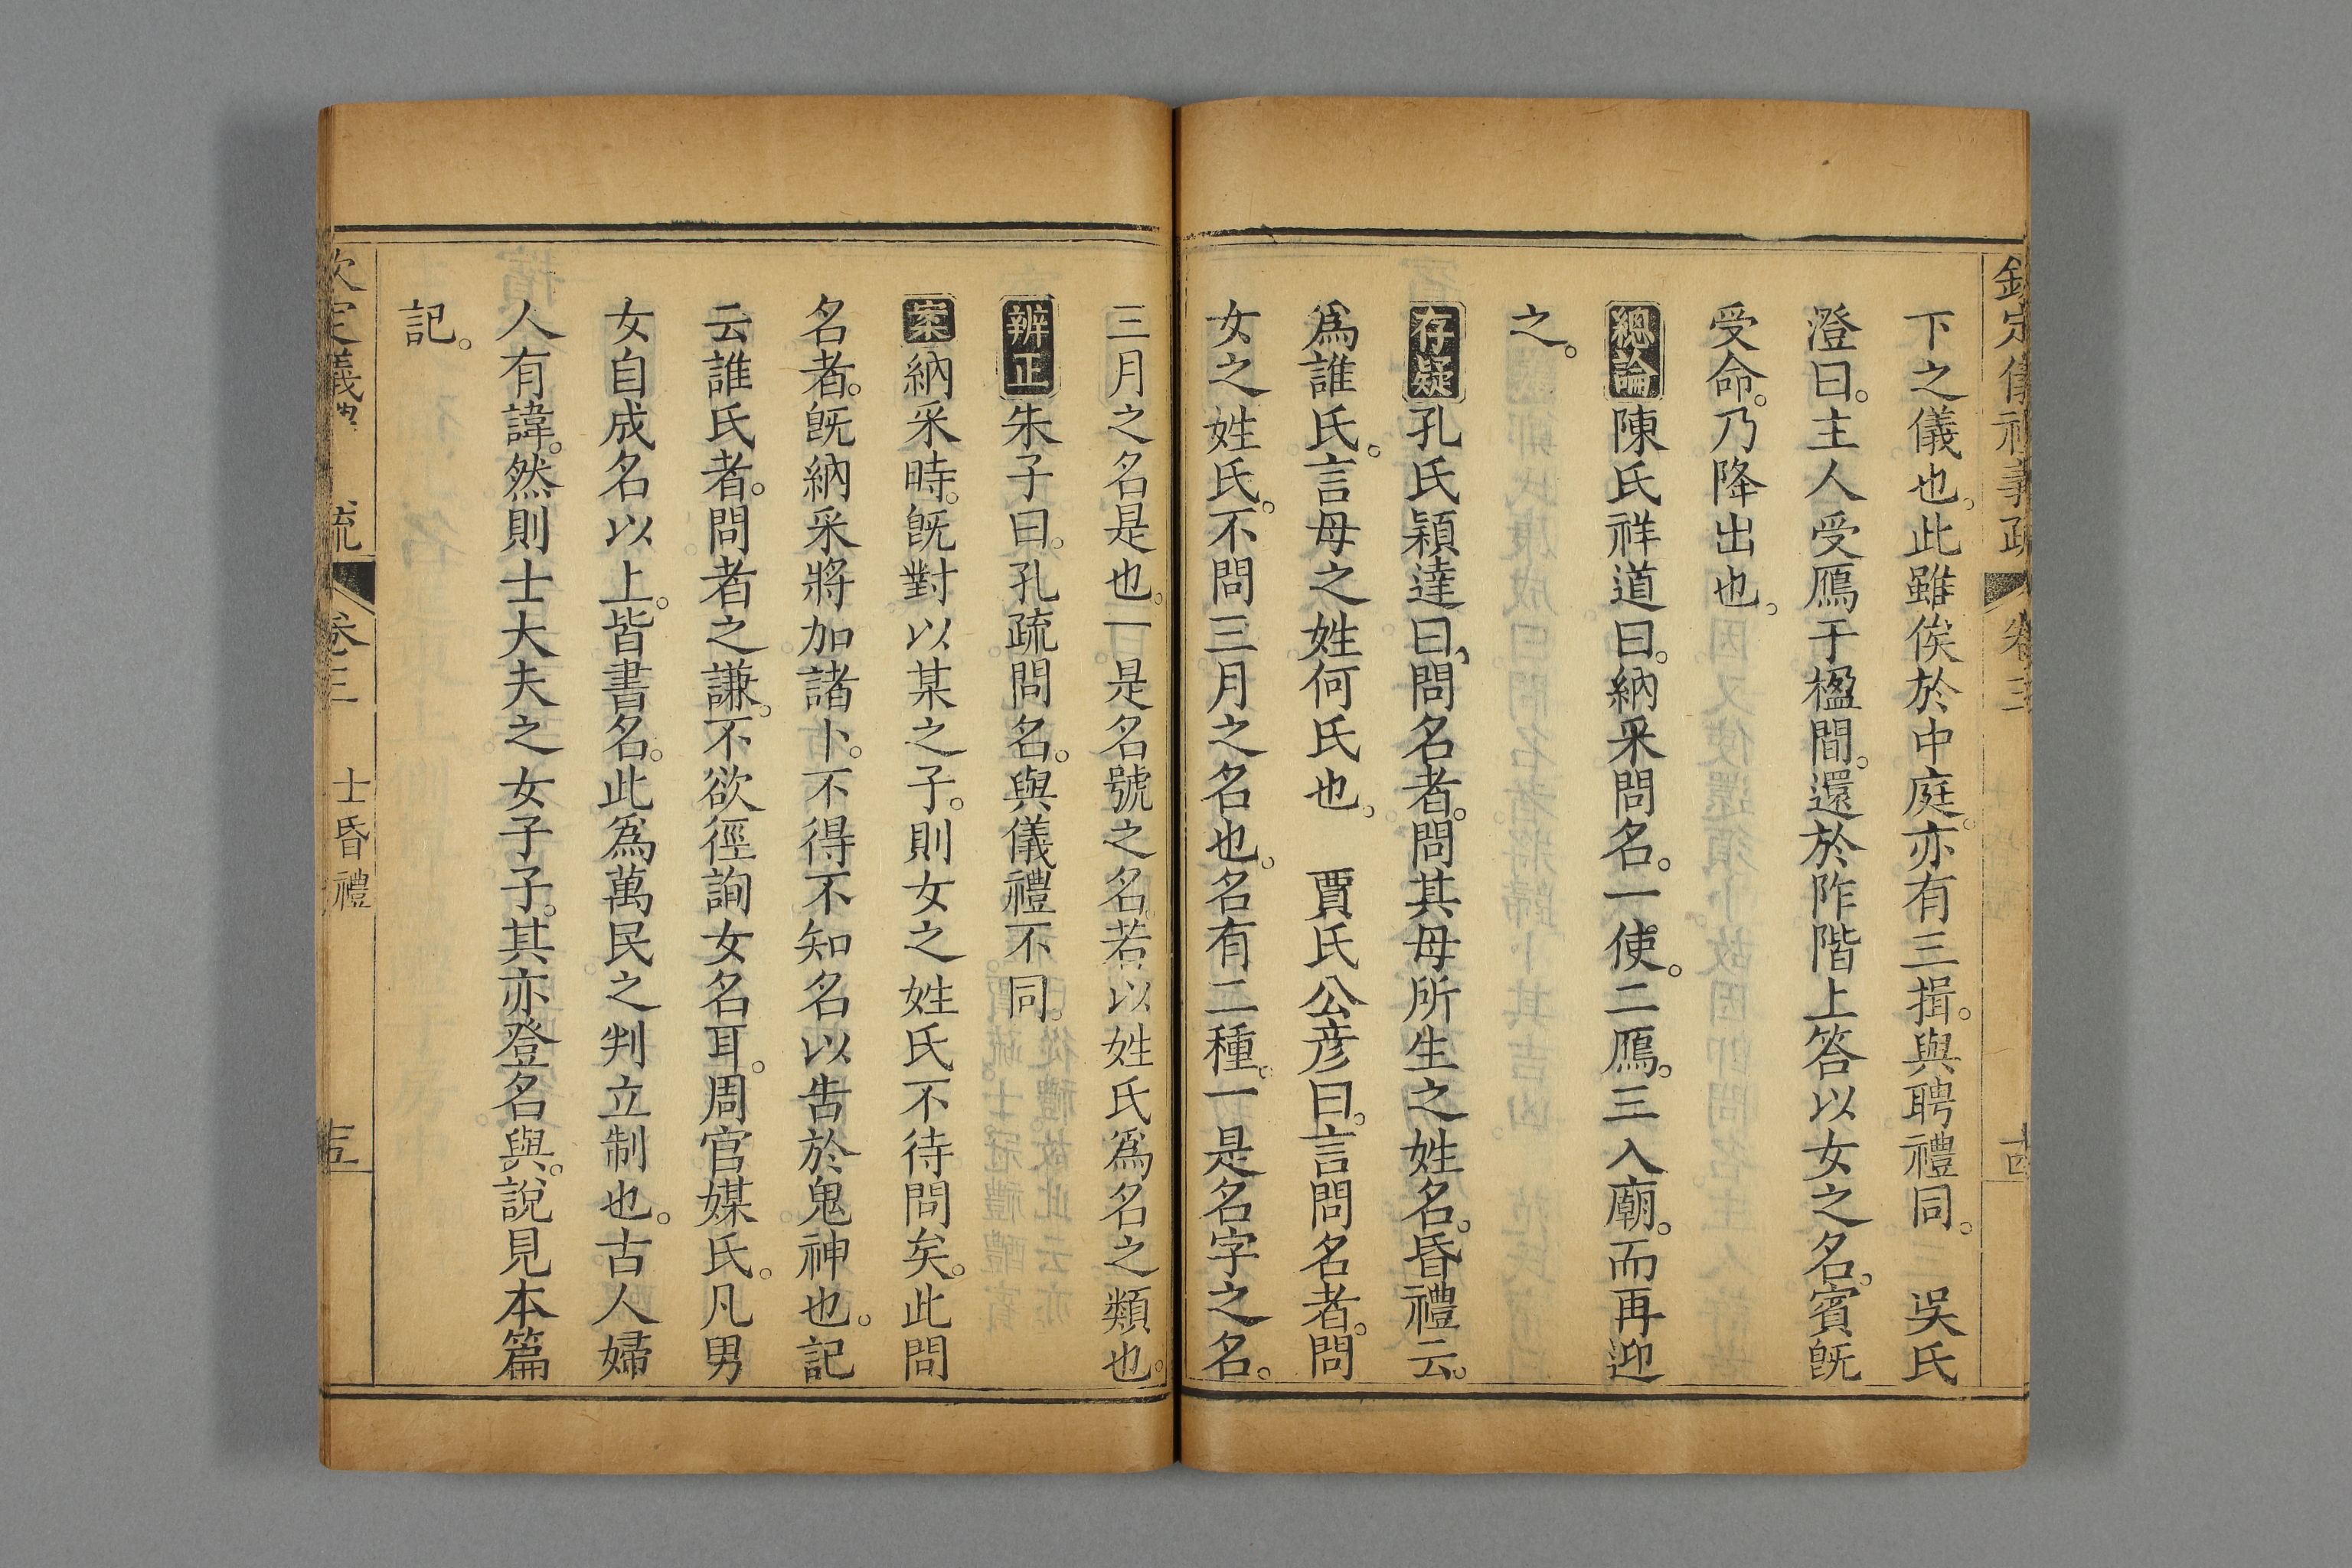 欽定儀禮義疏 卷三 十四
下之儀也。此雖俟於中庭。亦有三揖。與聘禮同。 吳氏
澄曰。主人受鴈于楹間。還於阼階上答以女之名。賓旣
受命。乃降出也。
總論 陳氏祥道曰。納采問名。一使。二鴈。三入廟。而再迎
之。
存疑 孔氏穎達曰、問名者。問其母所生之姓名。昏禮云。
爲誰氏。言母之姓何氏也。 賈氏公彦曰。言問名者。問
女之姓氏。不問三月之名也。名有二種。一是名字之名。
三月之名是也。一是名號之名。若以姓氏爲名之類也。
辨正 朱子曰。孔疏問名。與儀禮不同。
案 納采時。旣對以某之子。則女之姓氏不待問矣。此問
名者。旣納采將加諸卜。不得不知名以告於鬼神也。記
云誰氏者。問者之謙。不欲徑詢女名耳。周官媒氏。凡男
女自成名以上。皆書名。此爲萬民之判立制也。古人婦
人有諱。然則士大夫之女子子。其亦登名與。說見本篇
記。
欽定儀禮 疏 卷三 士昏禮 十五